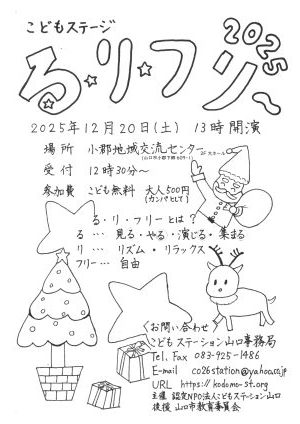 こどもステージ
る・リ・フリ〜 2025
2025年12月20日(土) 13時開演
場所 小郡地域交流センター 2F 大ホール
(山口市小郡下郷609-1)
受付 12時30分〜
参加費 こども無料 大人500円
(カンパとして)
る・リ・フリーとは?
る … 見る・やる・演じる・集まる
リ … リズム・リラックス
フリー… 自由
お問い合わせ
こどもステーション山口事務局
Tel. Fax 083-925-1486
E-mail co26station@yahoo.co.jp
URL https://kodomo-st.org
主催 認定NPO法人こどもステーション山口
後援 山口市教育委員会